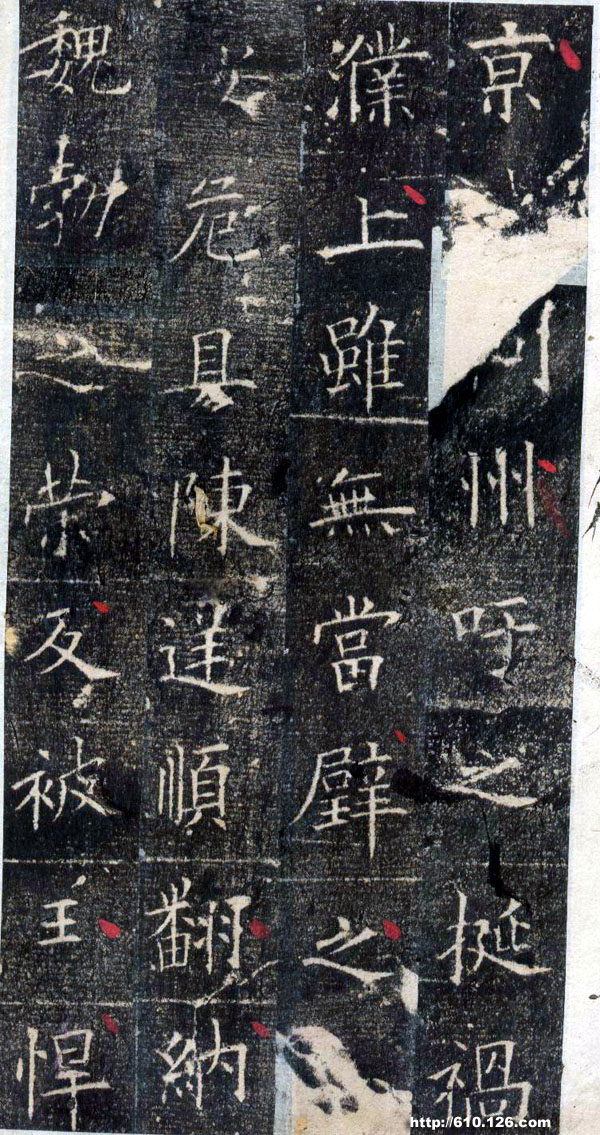 京州吁之挺禍
濮上雖無當璧之
安危具陳逆順翻納
魏勃之榮反被王悍
http://610.126.com